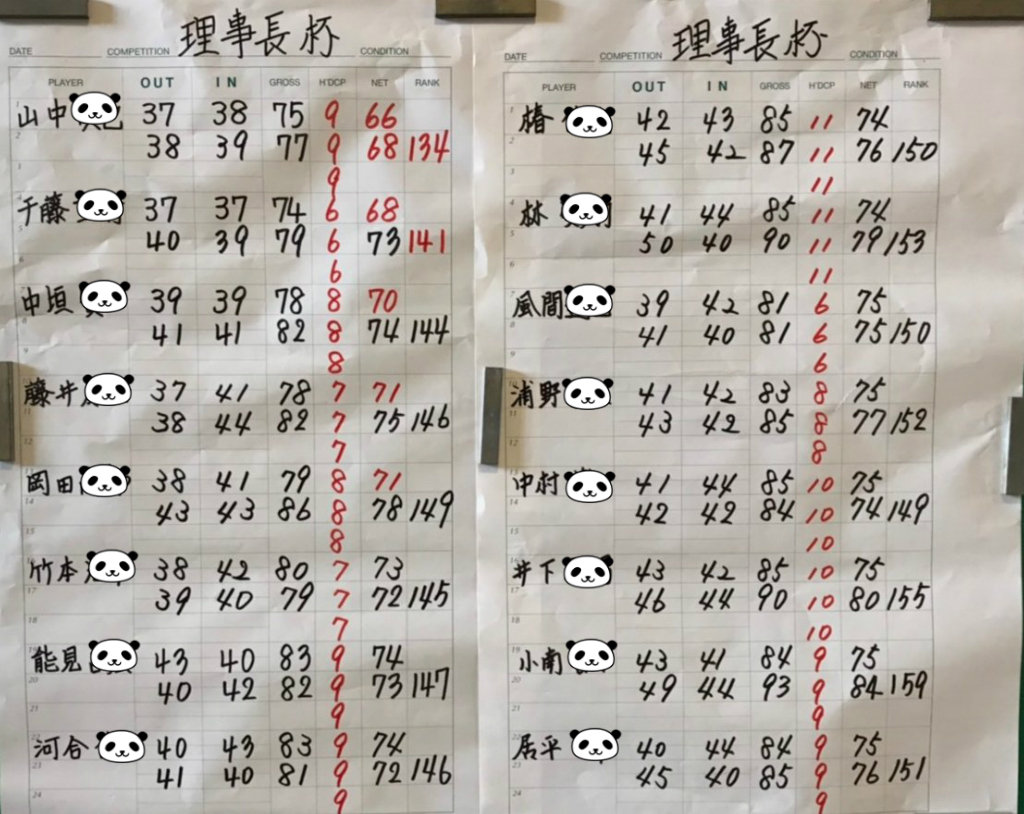 理事長杯
DATE COMPETITION CONDITION
PLAYER OUT IN GROSS H'DCP NET RANK
1 山中 37 38 75 9 66
38 39 77 9 68 134
9
4 千藤 37 37 74 6 68
5 40 39 79 6 73 141
6 6
7 中垣 39 39 78 8 70
8 41 41 82 8 74 144
9 8
藤井 37 41 78 7 71
11 38 44 82 7 75 146
12 7
岡田 38 41 79 8 71
14 43 43 86 8 78 149
15 8
16 竹本 38 42 80 7 73
17 39 40 79 7 72 145
18 7
19 能見 43 40 83 9 74
20 40 42 82 9 73 147
21 9
22 河合 40 43 83 9 74
23 41 40 81 9 72 146
24 9
理事長杯
DATE COMPETITION CONDITION
PLAYER OUT IN GROSS H'DCP NET RANK
1 椿 42 43 85 11 74
2 45 42 87 11 76 150
3 11
4 林 41 44 85 11 74
5 50 40 90 11 79 153
6 11
7 風間 39 42 81 6 75
8 41 40 81 6 75 150
9 6
10 浦野 41 42 83 8 75
11 43 42 85 8 77 152
12 8
中村 41 44 85 10 75
14 42 42 84 10 74 149
15 10
16 井下 43 42 85 10 75
17 46 44 90 10 80 155
18 10
19 小南 43 41 84 9 75
20 49 44 93 9 84 159
21 9
22 居平 40 44 84 9 75
23 45 40 85 9 76 151
24 9